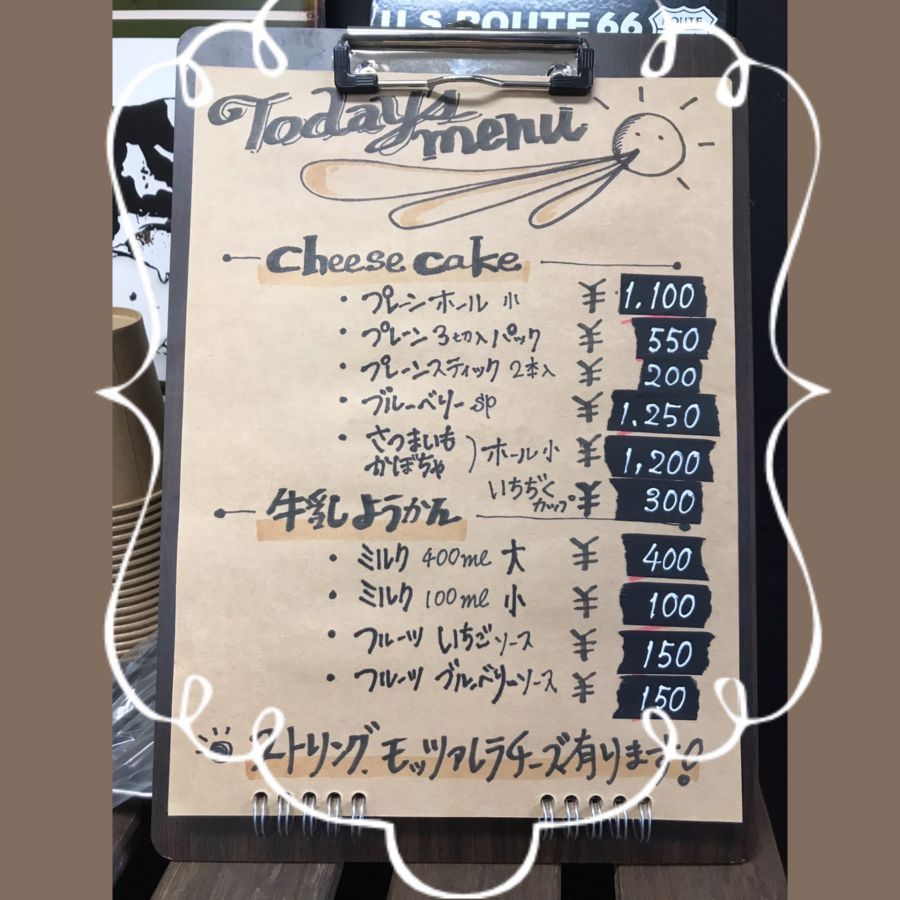 U.S. ROUTE 66
ROUTE
Today's
menu
cheese cake
・プレーンホール 小 ¥ 1,100
・プレーン 3切入パック ¥ 550
・プレーンスティック 2本入 ¥ 200
・ブルーベリー sp ¥ 1,250
・さつまいも
かぼちゃ ) ホール小 ¥ 1,200
いちぢくカップ ¥ 300
牛乳ようかん
・ミルク 400ml 大 ¥ 400
・ミルク 100ml 小 ¥ 100
・フルーツ いちごソース ¥ 150
・フルーツ ブルーベリーソース ¥ 150
ストリング、モッツァレラチーズ有ります!